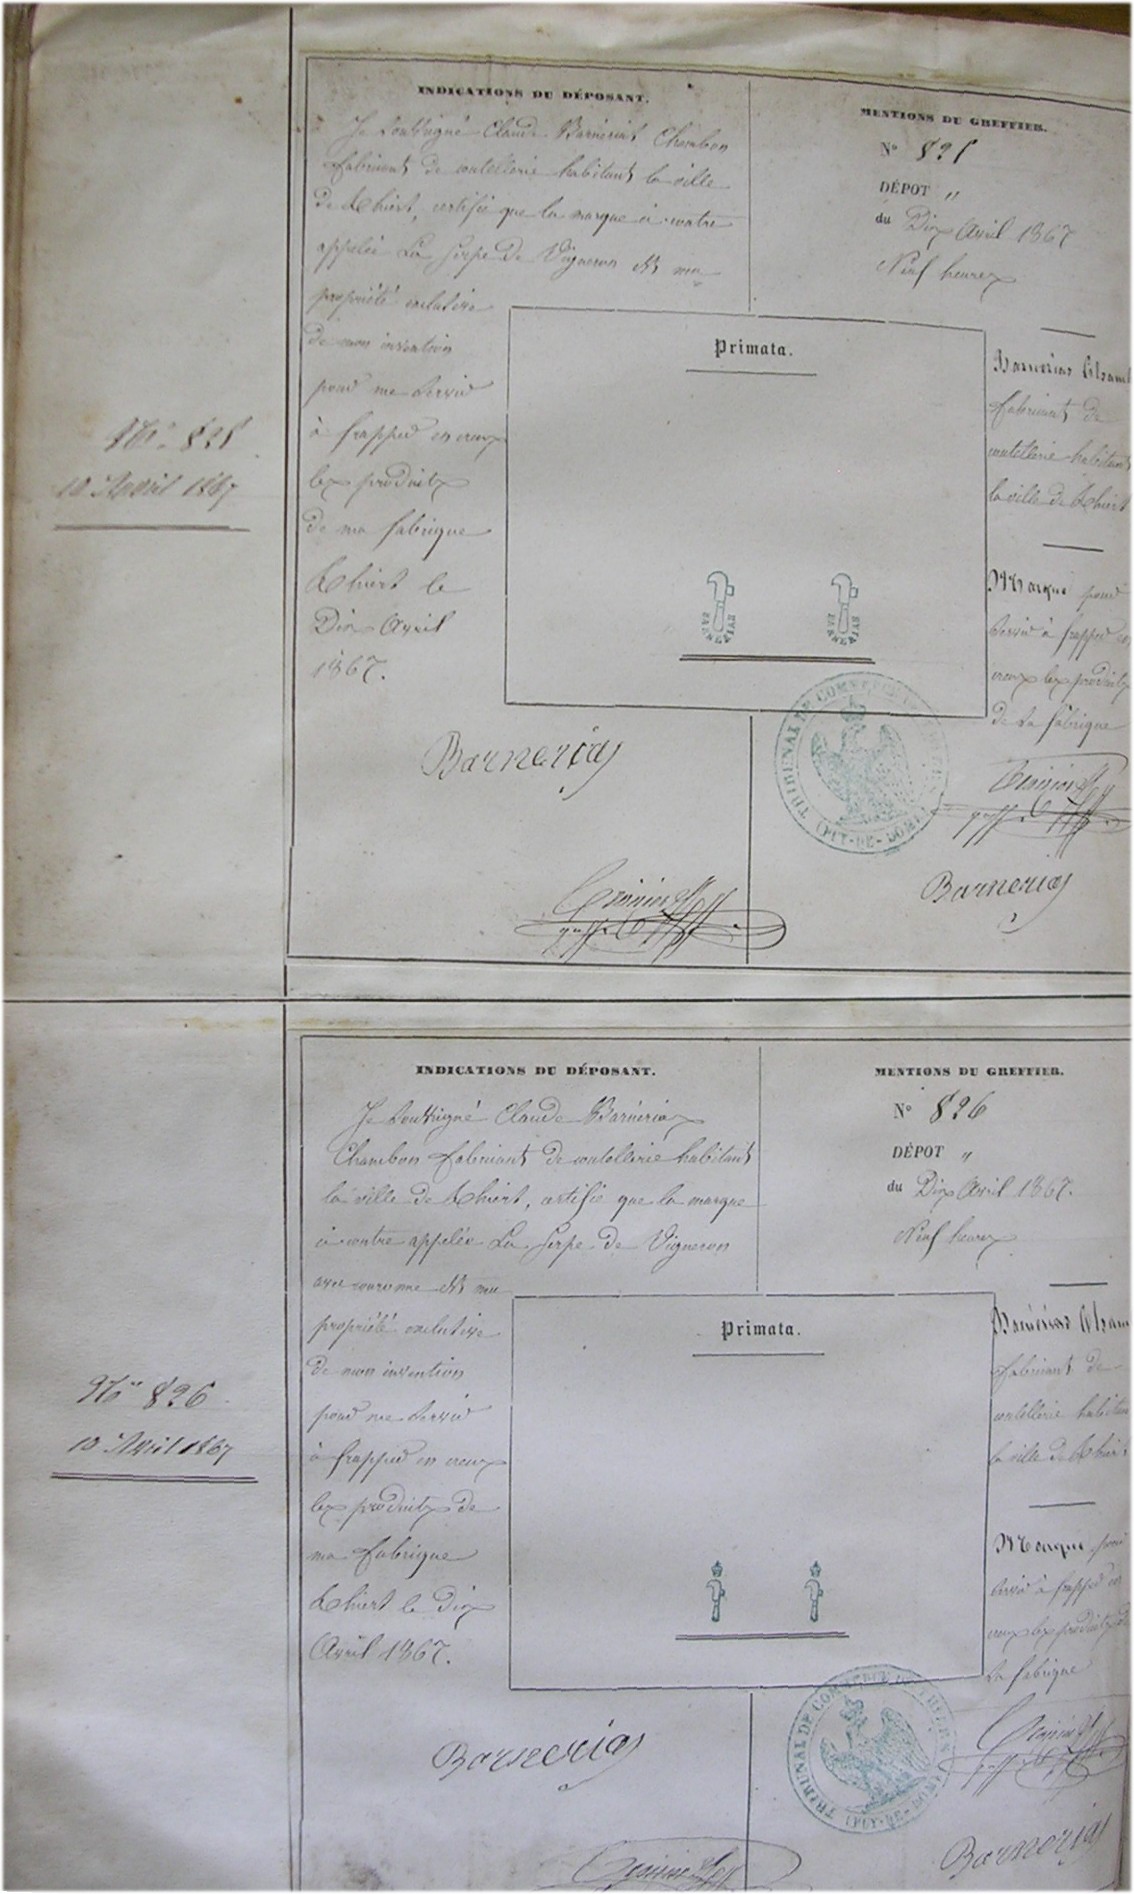 INDICATIONS DU DÉPOSANT.
Je soussigné Claude Barnérias Chambon
fabricant de coutellerie habitant la ville
de Thiert, certifie que la marque ci contre
appelée La Serpe de Vigneron est ma
propriété exclusive
de mon invention
pour me servir
à frapper en creux
les produits
de ma fabrique
Thiert le
Dix Avril
1867.
Barnerias
N° 825
10 Avril 1867
MENTIONS DU GREFFIER.
N° 825
DÉPOT "
du Dix Avril 1867
Neuf heures
Primata.
BARNERIAS
BARNERIAS
Barnerias Cham
fabricant de
coutellerie habitant
la ville de Thiert
Marque pour
servir à frapper en
creux les produits
de sa fabrique
TRIBUNAL DE COMMERCE DE THIERS
(PUY-DE-DOME)
Barnerias
INDICATIONS DU DÉPOSANT.
Je soussigné Claude Barnérias
Chambon fabricant de coutellerie habitant
la ville de Thiert, certifie que la marque
ci contre appelée La Serpe de Vigneron
avec couronne est ma
propriété exclusive
de mon invention
pour me servir
à frapper en creux
les produits de
ma fabrique
Thiert le Dix
Avril 1867.
Barnerias
N° 826
10 Avril 1867
MENTIONS DU GREFFIER.
N° 826
DÉPOT "
du Dix Avril 1867.
Neuf heures
Primata.
Barnérias Cham
fabricant de
coutellerie habitan
la ville de Thiert
Marque pour
servir à frapper en
creux les produits de
sa fabrique
TRIBUNAL DE COMMERCE DE THIERS
(PUY-DE-DOME)
Barnerias